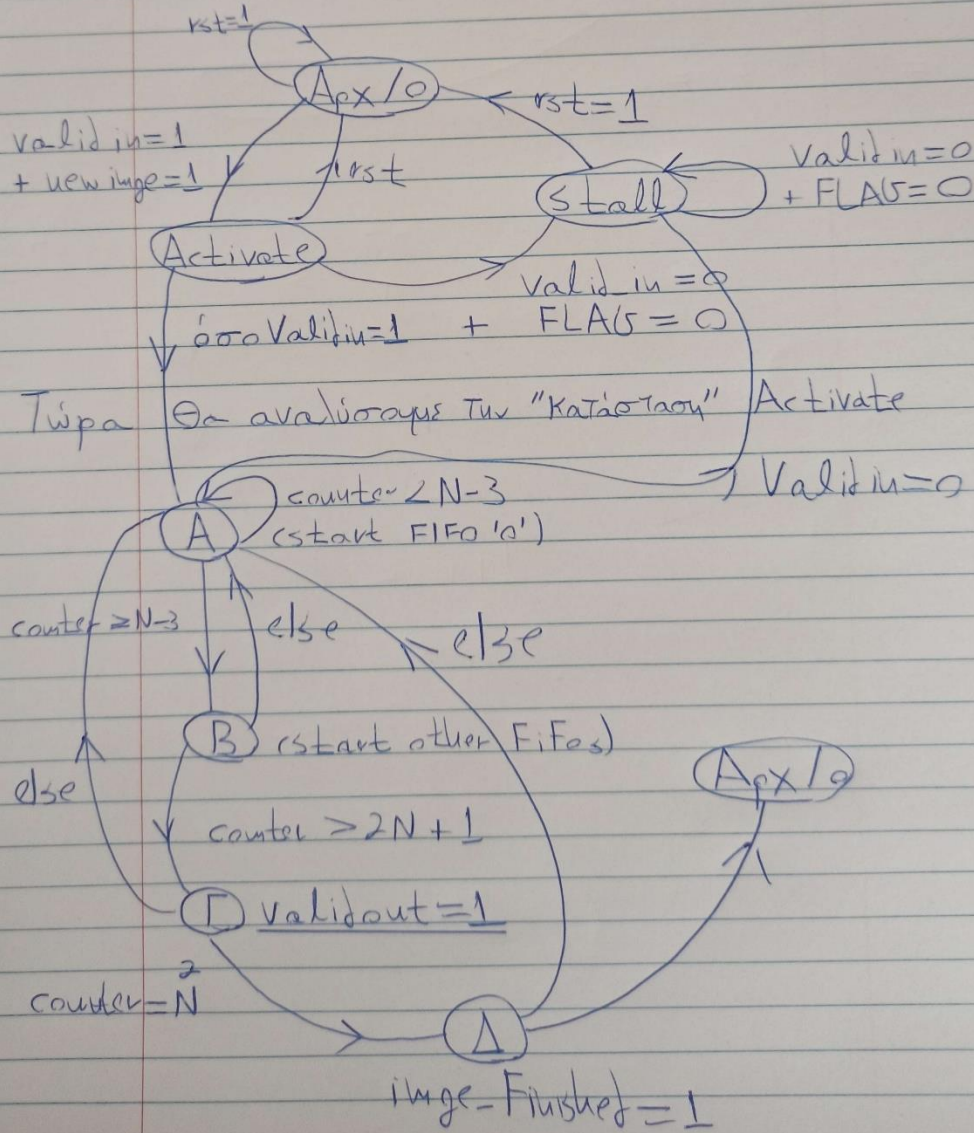 rst=1
Αρχ/ο
rst=1
valid in=1
+ new imge=1
rst
Valid in=0
+ FLAG=0
Stall
Activate
valid_in=0
όσο Validin=1 + FLAG=0
Τώρα θα αναλύσουμε την "κατάσταση" Activate
Validin=0
counter<N-3
A (start FIFO '0')
counter≥N-3
else
else
B (start other FiFos)
else
counter >2N+1
Αρχ/ο
Γ validout=1
counter=N²
Δ
imge_Finished=1